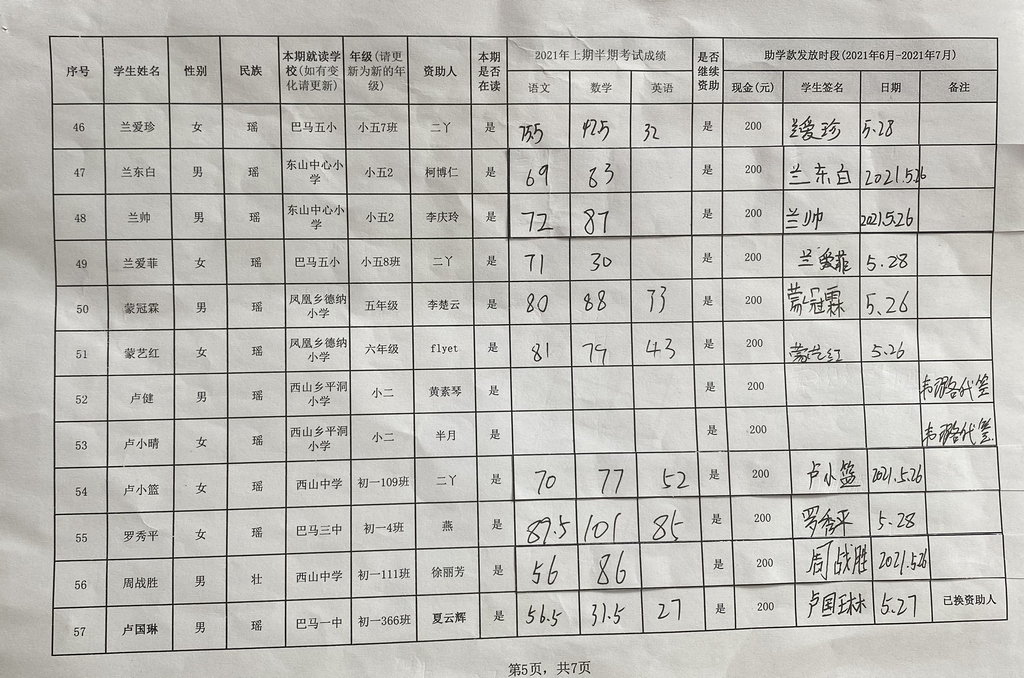 序号 学生姓名 性别 民族 本期就读学校(如有变化请更新) 年级(请更新为新的年级) 资助人 本期是否在读 2021年上期半期考试成绩 是否继续资助 助学款发放时段(2021年6月-2021年7月)
语文 数学 英语 现金(元) 学生签名 日期 备注
46 兰爱珍 女 瑶 巴马五小 小五7班 二丫 是 75.5 47.5 32 是 200 兰爱珍 5.28
47 兰东白 男 瑶 东山中心小学 小五2 柯博仁 是 69 83 是 200 兰东白 2021.5.26
48 兰帅 男 瑶 东山中心小学 小五2 李庆玲 是 72 87 是 200 兰帅 2021.5.26
49 兰爱菲 女 瑶 巴马五小 小五8班 二丫 是 71 30 是 200 兰爱菲 5.28
50 蒙冠霖 男 瑶 凤凰乡德纳小学 五年级 李楚云 是 80 88 33 是 200 蒙冠霖 5.26
51 蒙艺红 女 瑶 凤凰乡德纳小学 六年级 flyet 是 81 79 43 是 200 蒙艺红 5.26
52 卢健 男 瑶 西山乡平洞小学 小二 黄素琴 是 是 200 代签
53 卢小晴 女 瑶 西山乡平洞小学 小二 半月 是 是 200 代签
54 卢小篮 女 瑶 西山中学 初一109班 二丫 是 70 77 52 是 200 卢小篮 2021.5.26
55 罗秀平 女 瑶 巴马三中 初一4班 燕 是 89.5 101 85 是 200 罗秀平 5.28
56 周战胜 男 壮 西山中学 初一111班 徐丽芳 是 56 86 是 200 周战胜 2021.5.26
57 卢国琳 男 瑶 巴马一中 初一366班 夏云辉 是 56.5 31.5 27 是 200 卢国琳 5.27 已换资助人
第5页, 共7页